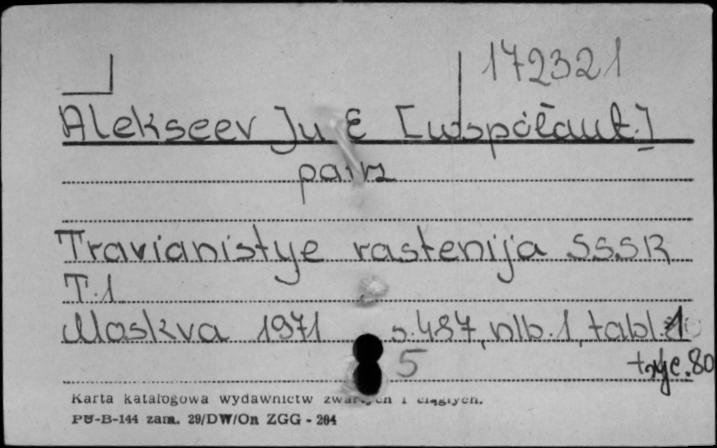 172321
Alekseev Ju E [współaut.]
patrz
Travianistye rastenija SSSR
T.1
Moskva 1971 s.487, nlb.1, tabl.
80
5
Karta katalogowa wydawnictw zwartych i ciągłych.
PU-B-144 zam. 29/DW/On ZGG - 204